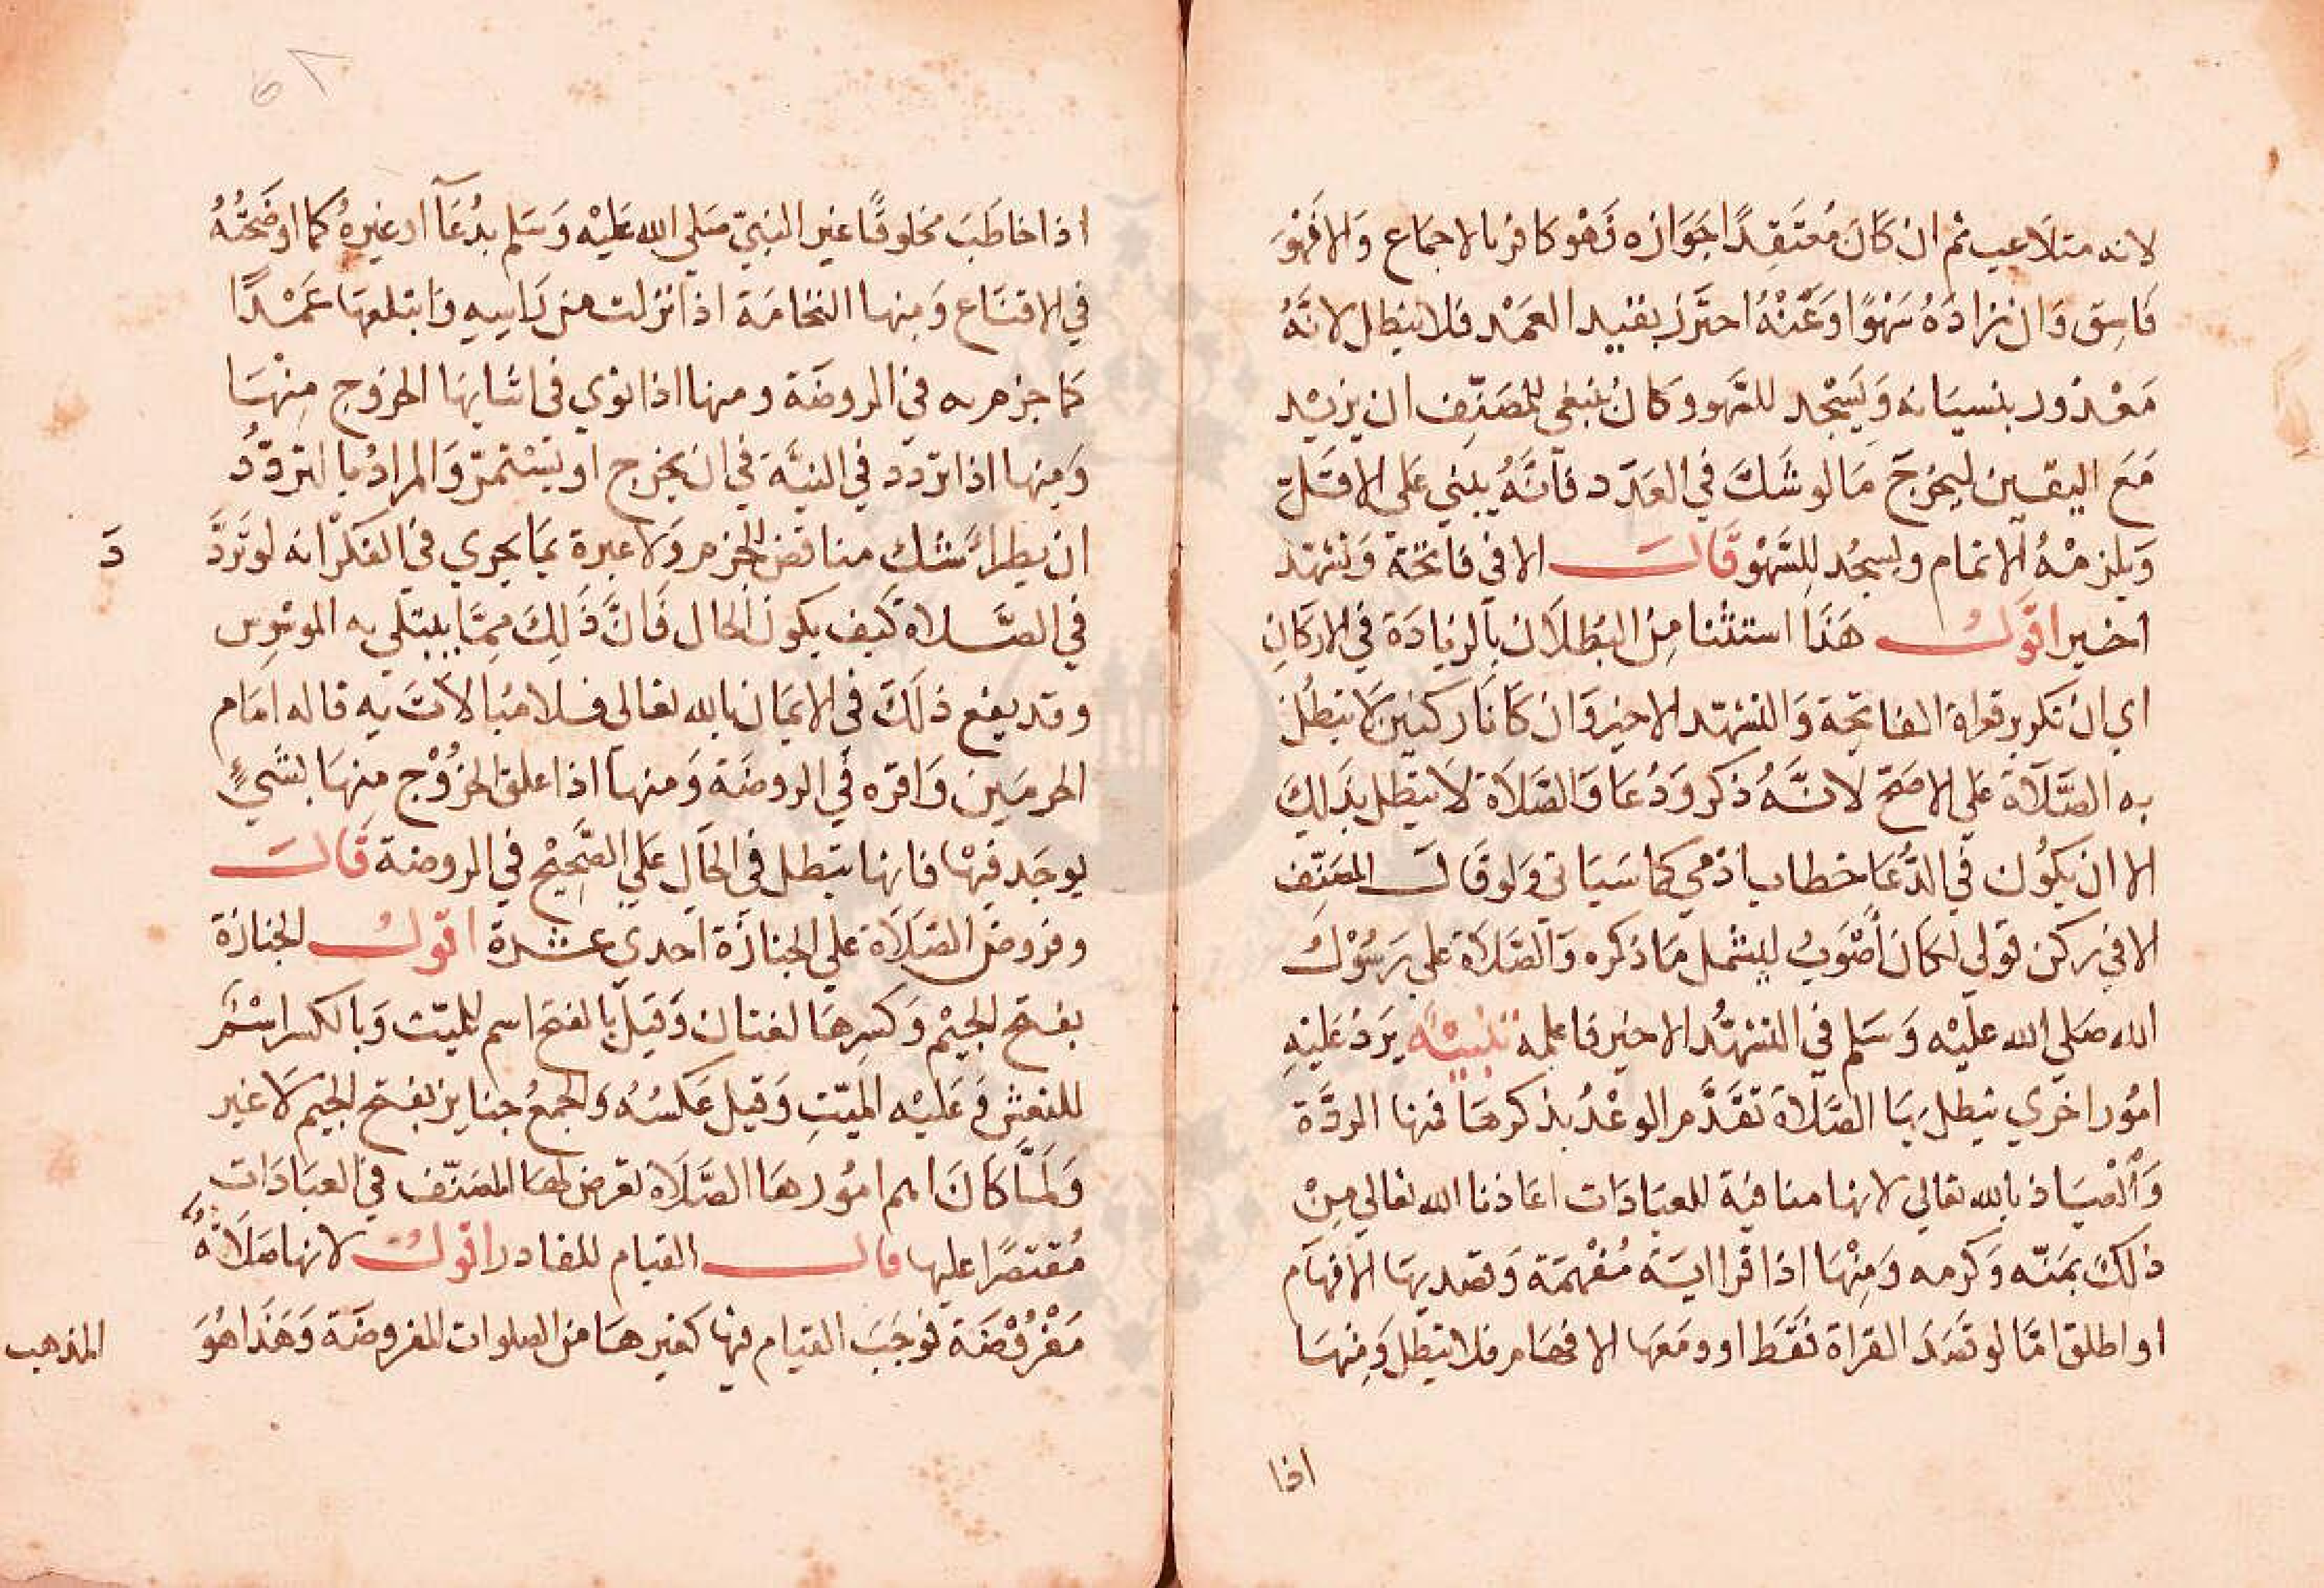 لانه متلاعب ثم ان كَانَ مُعتَقِدًا جَوَازه فَهْو كافر بالاجماع وَالا فَهْوَ
فَاسِق وَان زادَهُ سَهْوًا وَعَنْهُ احتَرز بقيد العَمْد فلا تبطل لانَّهُ
مَعْذور بنسيَانه وَيَسْجُد للسَّهو وكانَ ينبغي للمُصَنِّف ان يزيْد
مَعَ اليقين ليخرجَ مَا لو شَكَّ في العَدَد فَانَّهُ يبني عَلي الاقَل
وَيلزمْهُ الاتمام ويسجُد للِسَّهْو قَالَ الا في فاتحَة وَتشهّد
اخير اقولُ هَذَا استثنا مِن البُطلَان بالزيَادَة في الاركَانِ
اي ان تكرير قراة الفاتحِة وَالتشهّد الاخير وَان كَانَا ركنين لَا تبطُل
به الصَّلَاة عَلي الاصَحّ لانَّهُ ذكر وَدُعَا وَالصَّلَاة لَا تبطل بذَلِكَ
الا ان يكُون في الدُّعَا خطاب ادَمي كما سَيَاتي وَلو قَالَ المصَنّف
الا في ركن قولي لكَانَ أصْوَبُ ليشمل مَا ذكره وَالصَّلَاة علي رَسُوْل
الله صَلي الله عليْه وَسَلم في التشهُّد الاخير فاعلمه تنبيْهٌ يَردُ عَليْهِ
امُور اخرَي تبطل بهَا الصَّلَاة تقَدَّم الوعْدُ بذكرهَا فمنها الردَّة
وَالْعيَاذ بالله تعَالي لانها منافيَة للعبَادَات اعَاذنا الله تعَالي مِنْ
ذلكَ بمَنّه وَكرمه وَمِنْهَا اذا قرا ايَة مُفْهِمَة وَقصَد بهَا الافهَام
او اطلق امَّا لو قَصَدَ القراة فَقَط او وَمَعَها الافهَام فلا تبطل وَمِنهَا
اذا
اذا خاطَبَ مخلوقًا غير النبيّ صَلي الله عَليْه وَسَلم بدُعَآ او غيرهُ كما اوضَحْتُهُ
في الاقنَاع وَمِنها النخامَة اذا نزلت من رَاسِهِ وَابتلعهَا عَمْدًا
كما جزم به في الروضَة ومنها اذا نوي في اثنايهَا الخروج مِنْهَا
وَمِنها اذا تردد في النيَّة في ان يخرج او يَسْتمرّ وَالمرادُ بالتردّدُ
ان يطرا شك مناقض للجزم وَلا عبرة بمَا يجري في الفكر انه لو تَردَّ
دَ
في الصَّلاة كيف يكون الحال فَانَّ ذَلِكَ مِمَّا يبتلي به الموسوِس
وقد يقع ذلَكَ في الايمَان بالله تعَالى فلا مبَالاتَ به قاله امَام
الحرمَين وَاقره في الروضَة وَمنها اذا علق الخرُوْج مِنهَا بشَيءٍ
يوجَد فيْهَا فانها تبطل في الحَال عَلي الصَّحِيْح في الروضة قَالَ
وفروض الصَّلَاة علي الجنازَة احدي عشرة اقولُ الجنازَة
بفتح الجيْم وَكسِرهَا لغتان وَقيل بالفتح اسم للميّت وَبالكسر اسْم
للنعش وَعَليْه الميّتِ وَقيل عَكسُهُ وَالجمعُ جنايز بفتح الجيم لَا غير
وَلمَّا كَانَ اهم امُورهَا الصَّلَاة تعَرض لهَا المصَنّف في العبَادَات
مُقتصرًا عليها قال القيام للقادر اقولُ لانها صَلَاة
مَفْرُوْضَة فوجَبَ القيَام فيها كغيرهَا من الصلوات المفروضَة وَهَذَا هُوَ
المذهب